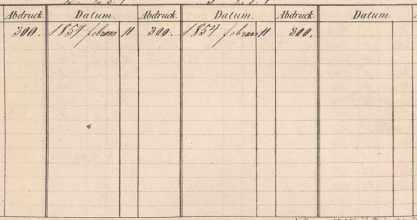 Abdruck. Datum. Abdruck. Datum. Abdruck. Datum.
300. 1854 februar 11 300. 1854 februar 11 300.